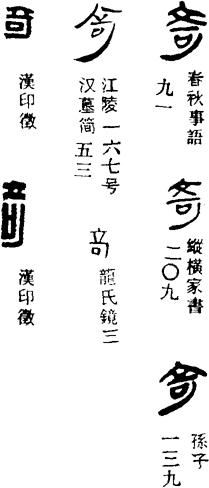 奇
春秋事語
九一
奇
縱橫家書
二〇九
奇
孫子
一三九
奇
江陵一六七号
汉墓简五三
奇
龍氏鏡三
奇
漢印徵
奇
漢印徵